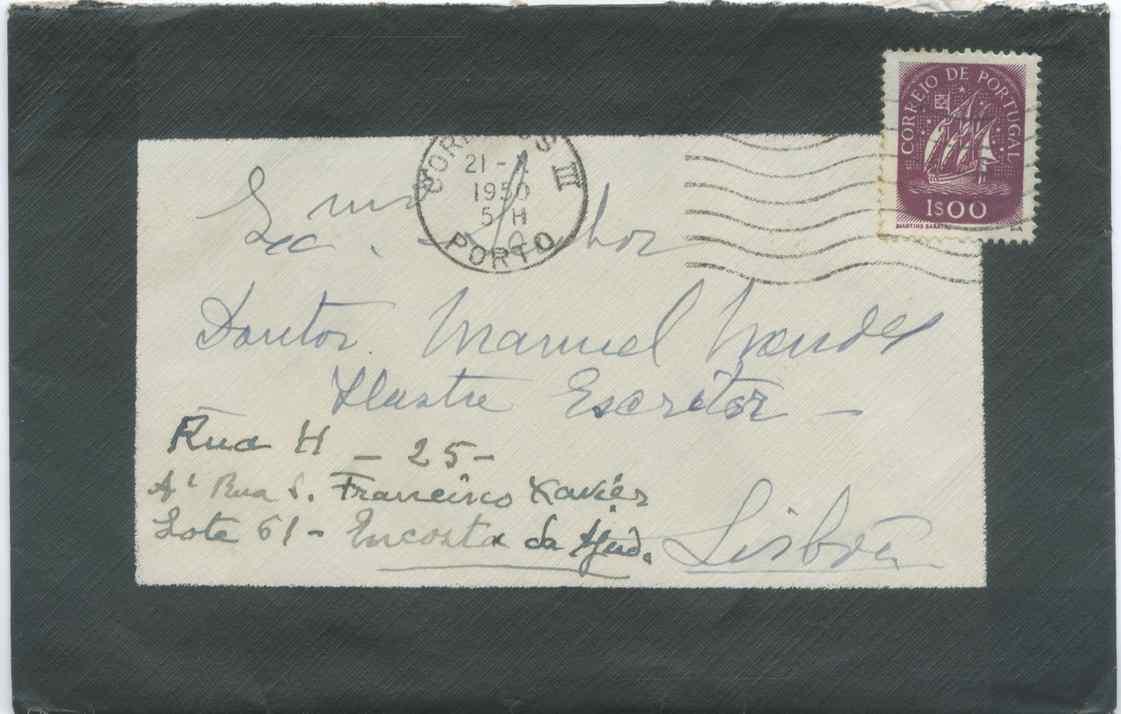 CORREIO DE PORTUGAL
1$00
MARTINS BARATA
CORREIOS III
21 -
1950
5 H
PORTO
Exmo. Senhor
Doutor Manuel Mendes
Ilustre Escritor -
Rua H - 25 -
À Rua S. Francisco Xavier
Lote 61 - Encosta da Ajuda
Lisboa